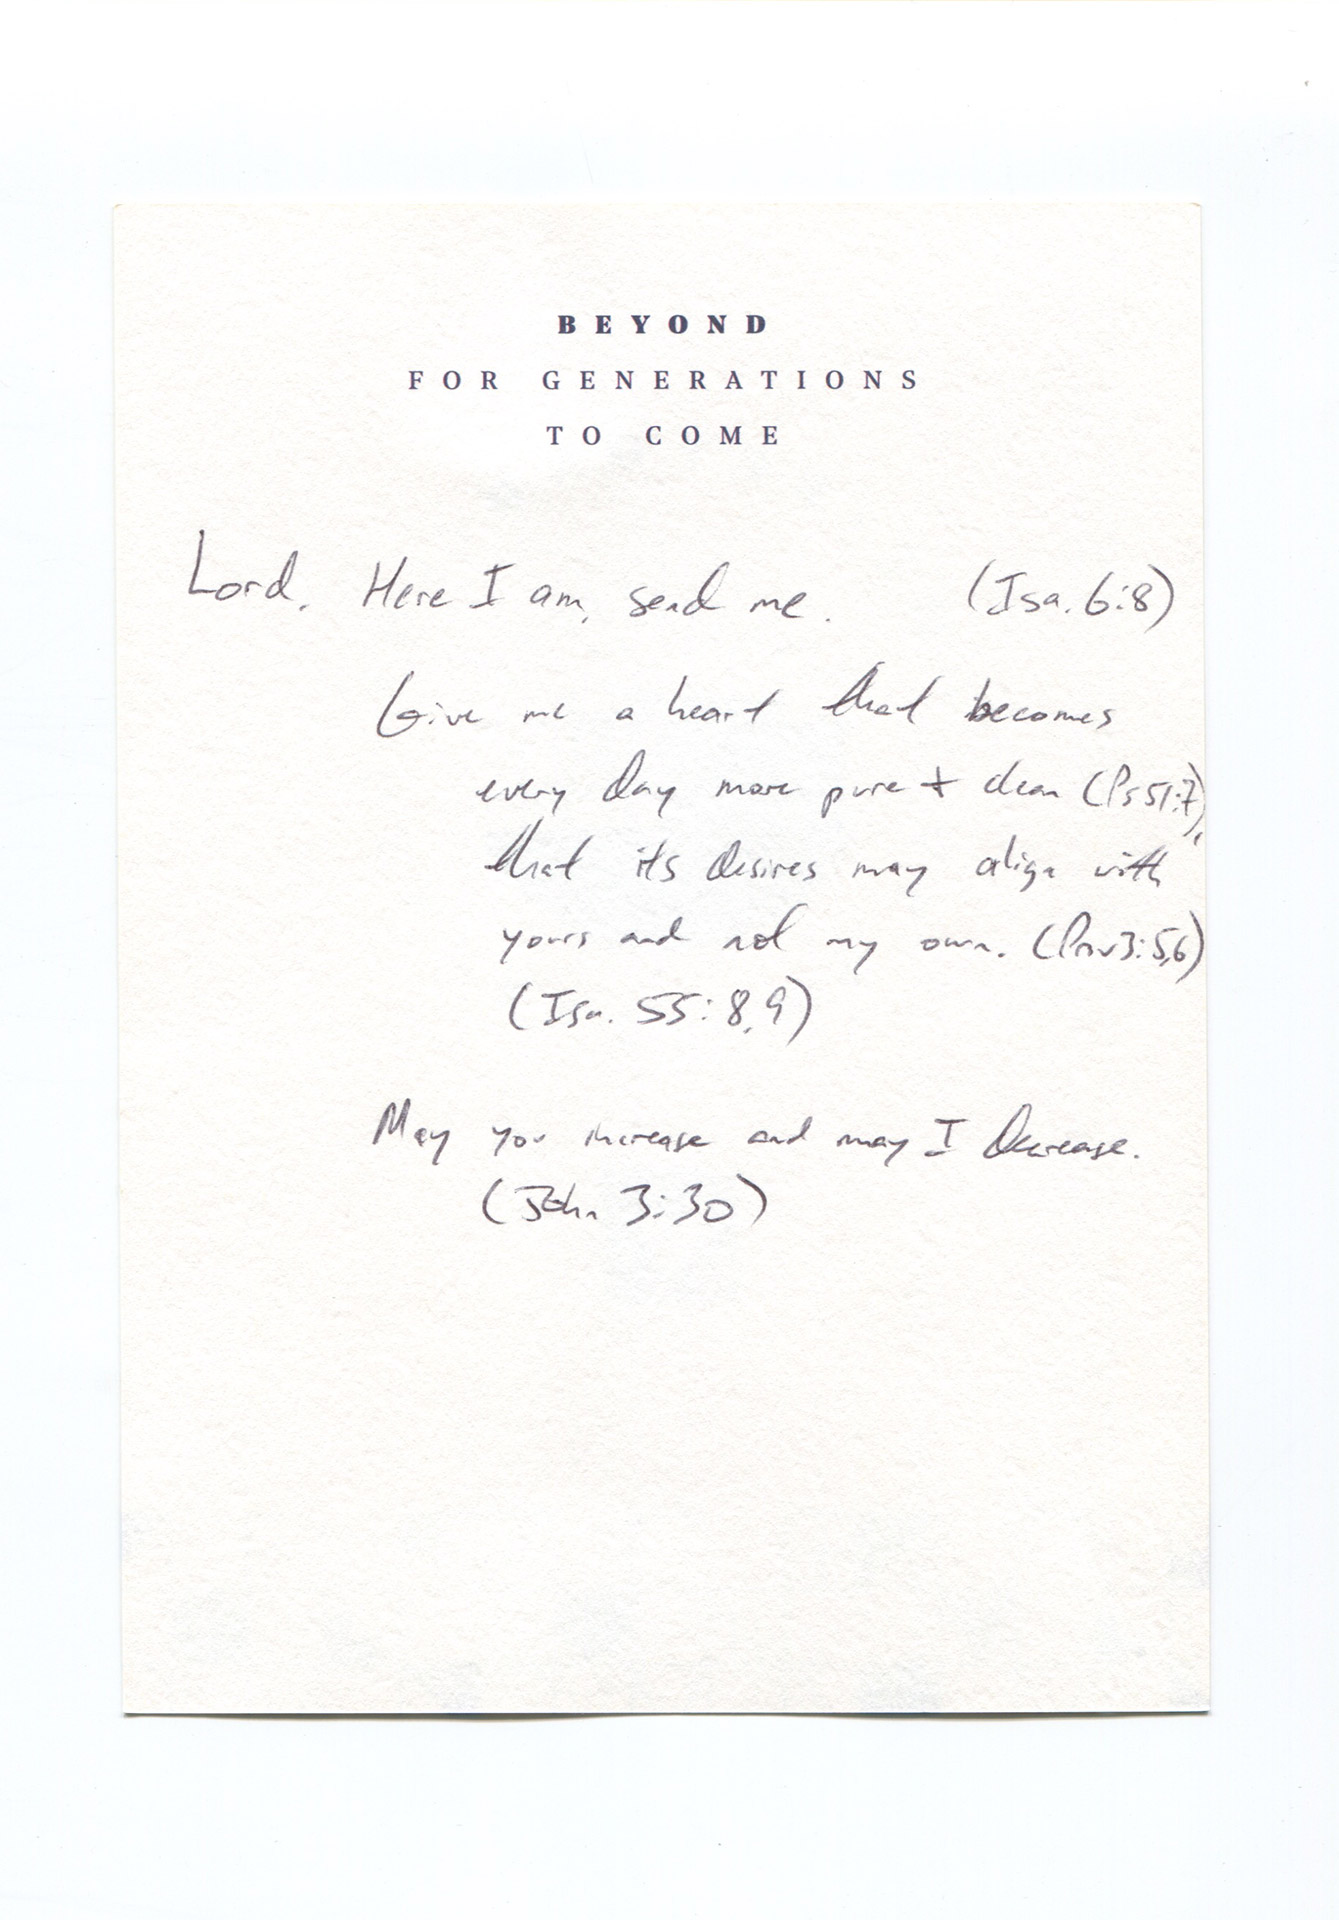 BEYOND
FOR GENERATIONS
TO COME
Lord, Here I am, send me. (Isa. 6:8)
Give me a heart that becomes
every day more pure + clean (Ps 51:7),
that its desires may align with
yours and not my own. (Prov 3:5,6)
(Isa. 55:8,9)
May you increase and may I decrease.
(John 3:30)